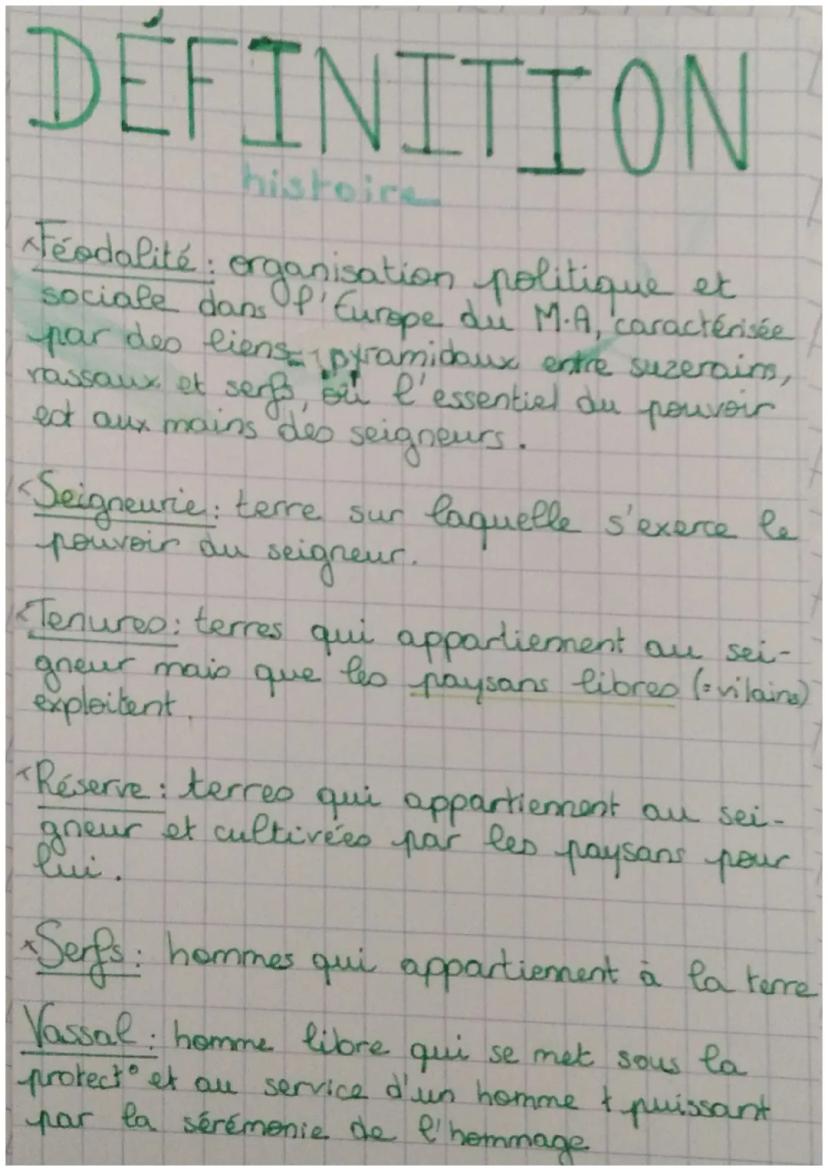 DÉFINITION
histoire
Féodalité : organisation politique et
sociale dans l'Europe du M.A, caractérisée
par des liens pyramidaux entre suzerains,
vassaux et serfs, où l'essentiel du pouvoir
est aux mains des seigneurs.
Seigneurie : terre sur laquelle s'exerce le
pouvoir du seigneur.
Tenures : terres qui appartiennent au sei-
gneur mais que les paysans libres (=vilains)
exploitent.
Réserve : terres qui appartiennent au sei-
gneur et cultivées par les paysans pour
lui.
Serfs : hommes qui appartiennent à la terre
Vassal : homme libre qui se met sous la
protect° et au service d'un homme + puissant
par la sérémonie de l'hommage